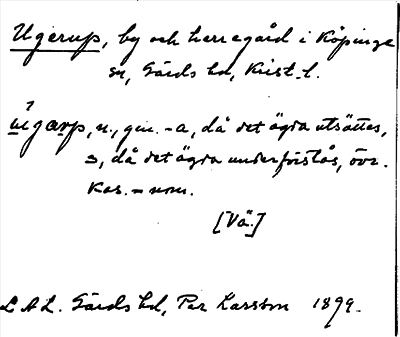 Ugerup, by och herregård i Köpinge
sn, Gärds hd, Krist. l.
ùgarp, n., gen. -a, då det ägda utsättes,
s, då det ägda underförstås, övr.
kas. = nom.
[Vä.]
L.A.L. Gärds hd, Per Larsson 1899.